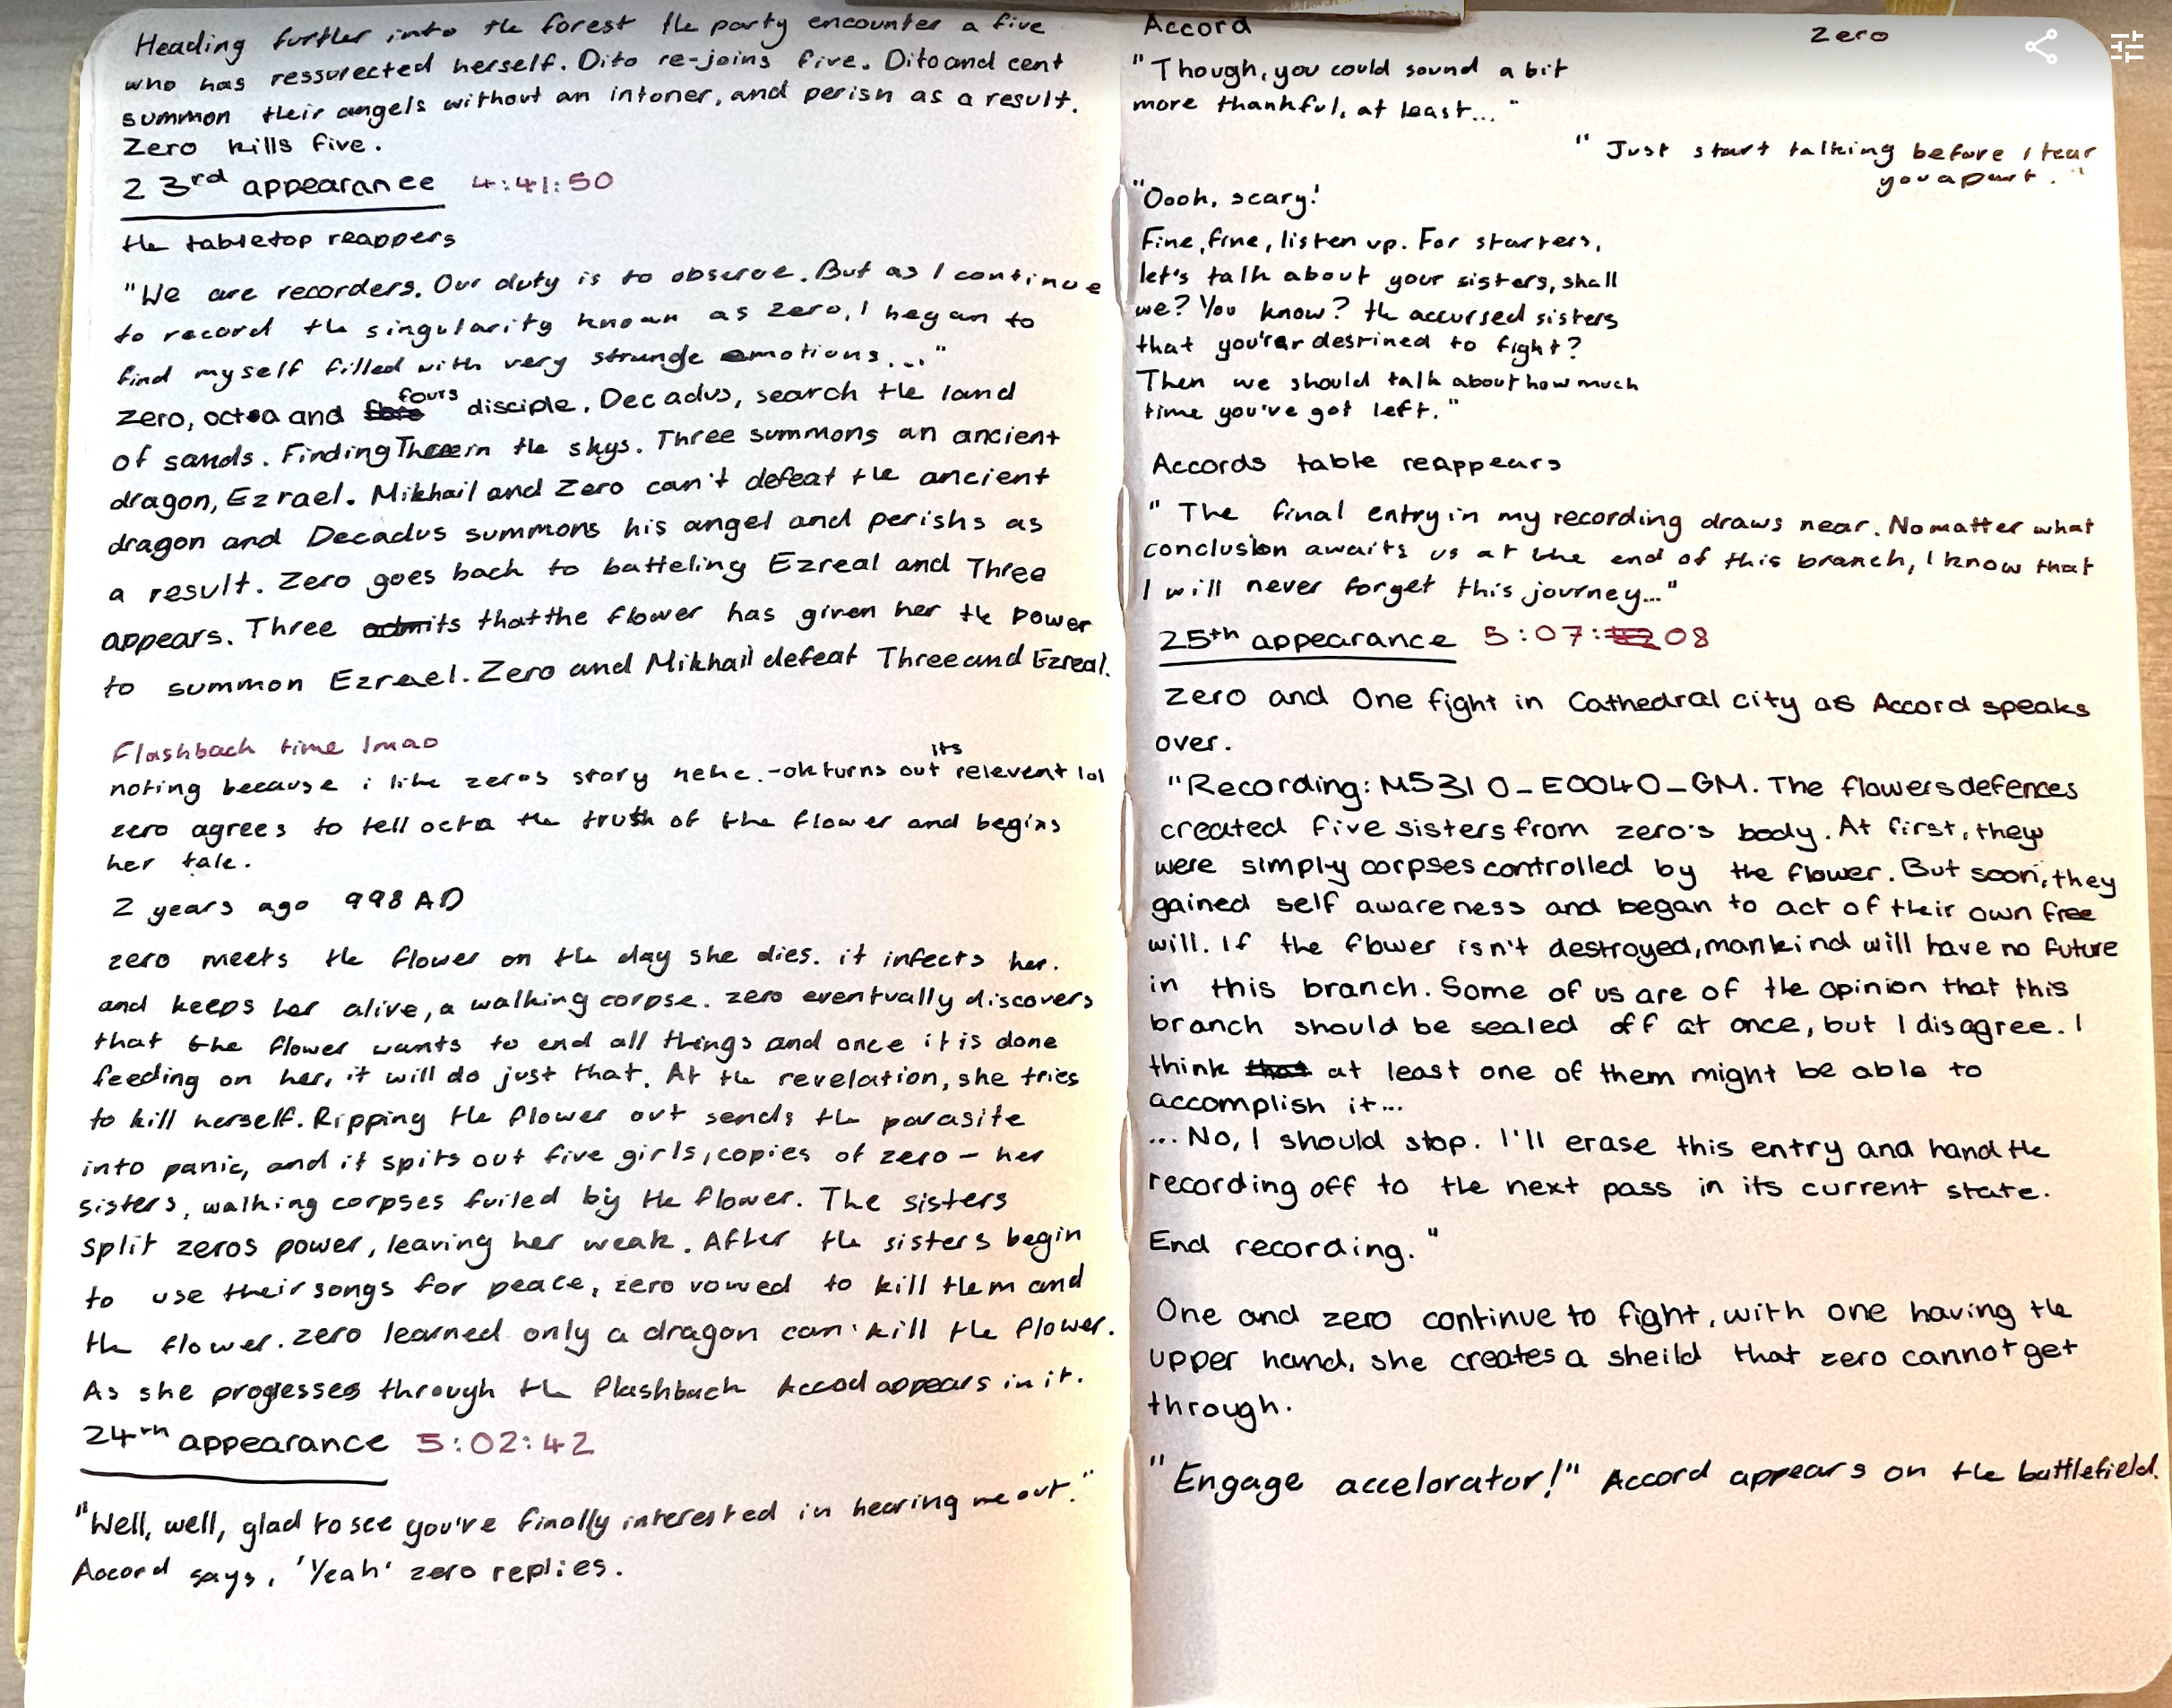 Heading further into the forest the party encounter a five
who has ressurected herself. Dito re-joins five. Dito and cent
summon their angels without an intoner, and perish as a result.
Zero kills five.
23rd appearance 4:41:50
the tabletop reappers
"We are recorders. Our duty is to observe. But as I continue
to record the singularity known as zero, I began to
find myself filled with very strange emotions..."
zero, octoa and fours disciple. Decadus, search the land
of sands. Finding Three in the skys. Three summons an ancient
dragon, Ezrael. Mikhail and Zero can't defeat the ancient
dragon and Decadus summons his angel and perishs as
a result. Zero goes back to batteling Ezreal and Three
appears. Three admits that the flower has given her the power
to summon Ezrael. Zero and Mikhail defeat Three and Ezreal.
Flashback time lmao
noting because i like zeros story hehe. -ok turns out its relevent lol
zero agrees to tell octa the truth of the flower and begins
her tale.
2 years ago 998 AD
zero meets the flower on the day she dies. it infects her.
and keeps her alive, a walking corpse. zero eventually discovers
that the flower wants to end all things and once it is done
feeding on her, it will do just that. At the revelation, she tries
to kill herself. Ripping the flower out sends the parasite
into panic, and it spits out five girls, copies of zero - her
sisters, walking corpses fuiled by the flower. The sisters
split zeros power, leaving her weak. After the sisters begin
to use their songs for peace, zero vowed to kill them and
the flower. zero learned only a dragon can kill the flower.
As she progesses through the flashback Accod appears in it.
24th appearance 5:02:42
"Well, well, glad to see you've finally interested in hearing me out."
Accord says, 'Yeah' zero replies.
Accord
Zero
"Though, you could sound a bit
more thankful, at least..."
"Just start talking before I tear
you apart."
"Oooh, scary!
Fine, fine, listen up. For starters,
let's talk about your sisters, shall
we? You know? the accursed sisters
that you'rer desrined to fight?
Then we should talk about how much
time you've got left."
Accords table reappears
"The final entry in my recording draws near. No matter what
conclusion awaits us at the end of this branch, I know that
I will never forget this journey..."
25th appearance 5:07:08
Zero and One fight in Cathedral city as Accord speaks
over.
"Recording: M5310_E0040_GM. The flowers defences
created five sisters from zero's body. At first, they
were simply corpses controlled by the flower. But soon, they
gained self awareness and began to act of their own free
will. If the flower isn't destroyed, mankind will have no future
in this branch. Some of us are of the opinion that this
branch should be sealed off at once, but I disagree. I
think that at least one of them might be able to
accomplish it...
...No, I should stop. I'll erase this entry and hand the
recording off to the next pass in its current state.
End recording."
One and zero continue to fight, with one having the
upper hand, she creates a sheild that zero cannot get
through.
"Engage accelorator!" Accord appears on the battlefield.